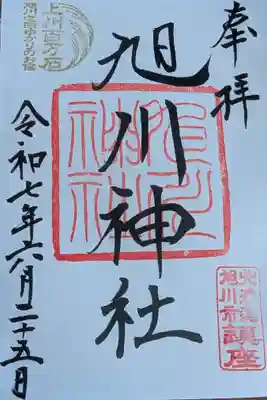 奉拝
旭川神社
令和七年六月二十五日
上川百万石
旭川市
鎮座